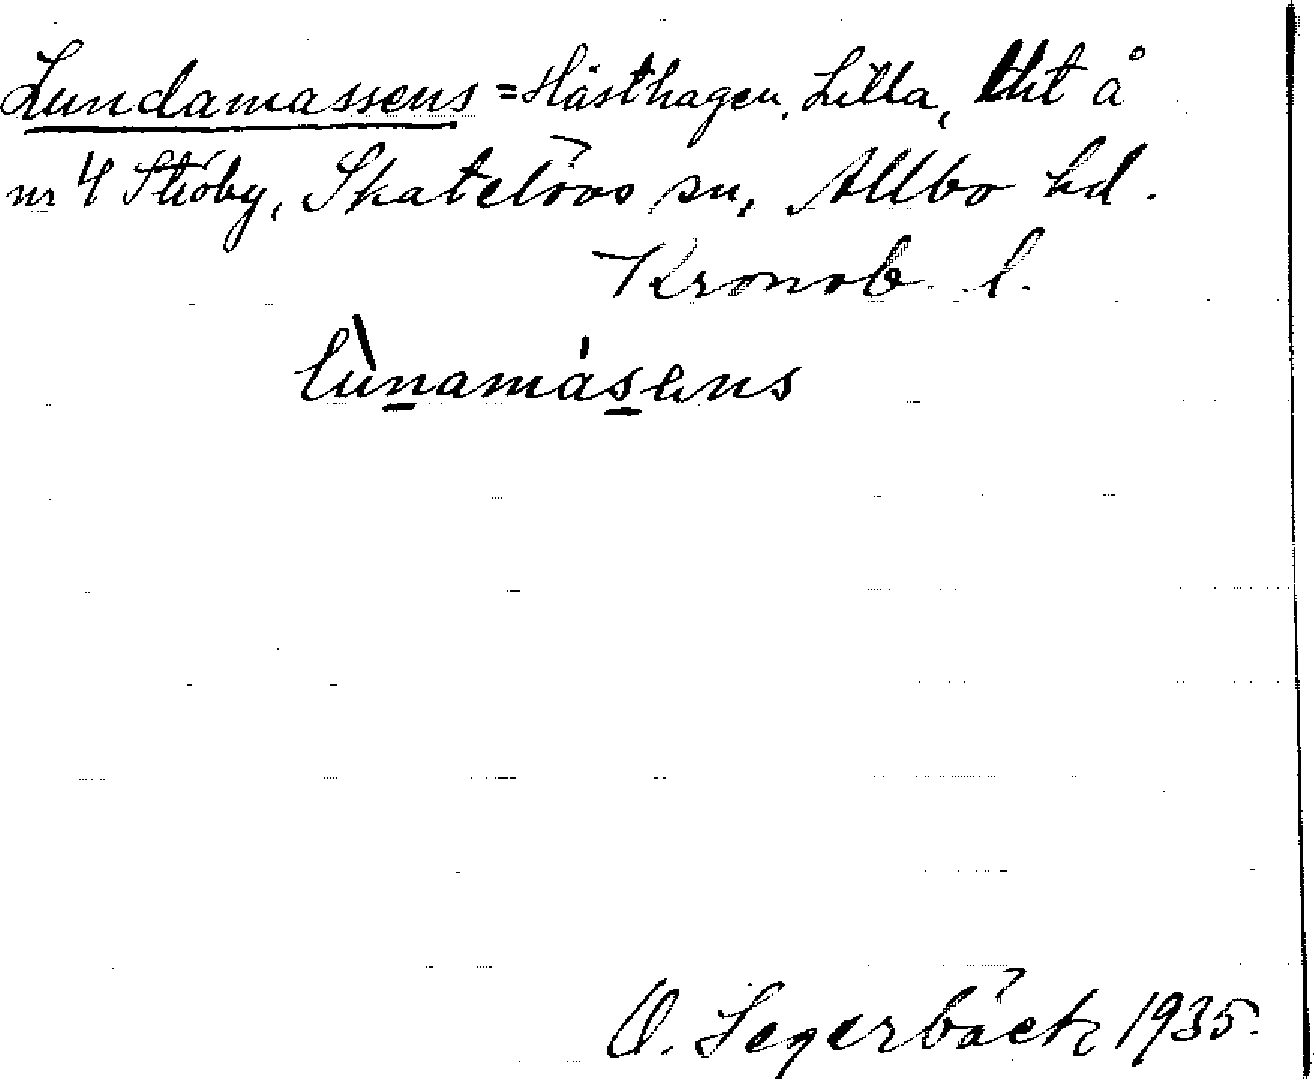 Lundamassens = Hästhagen, Lilla, lht å
nr 4 Ströby, Skatelövs sn, Allbo hd.
Kronob. l.
lùnamásens
O. Segerbäck 1935.